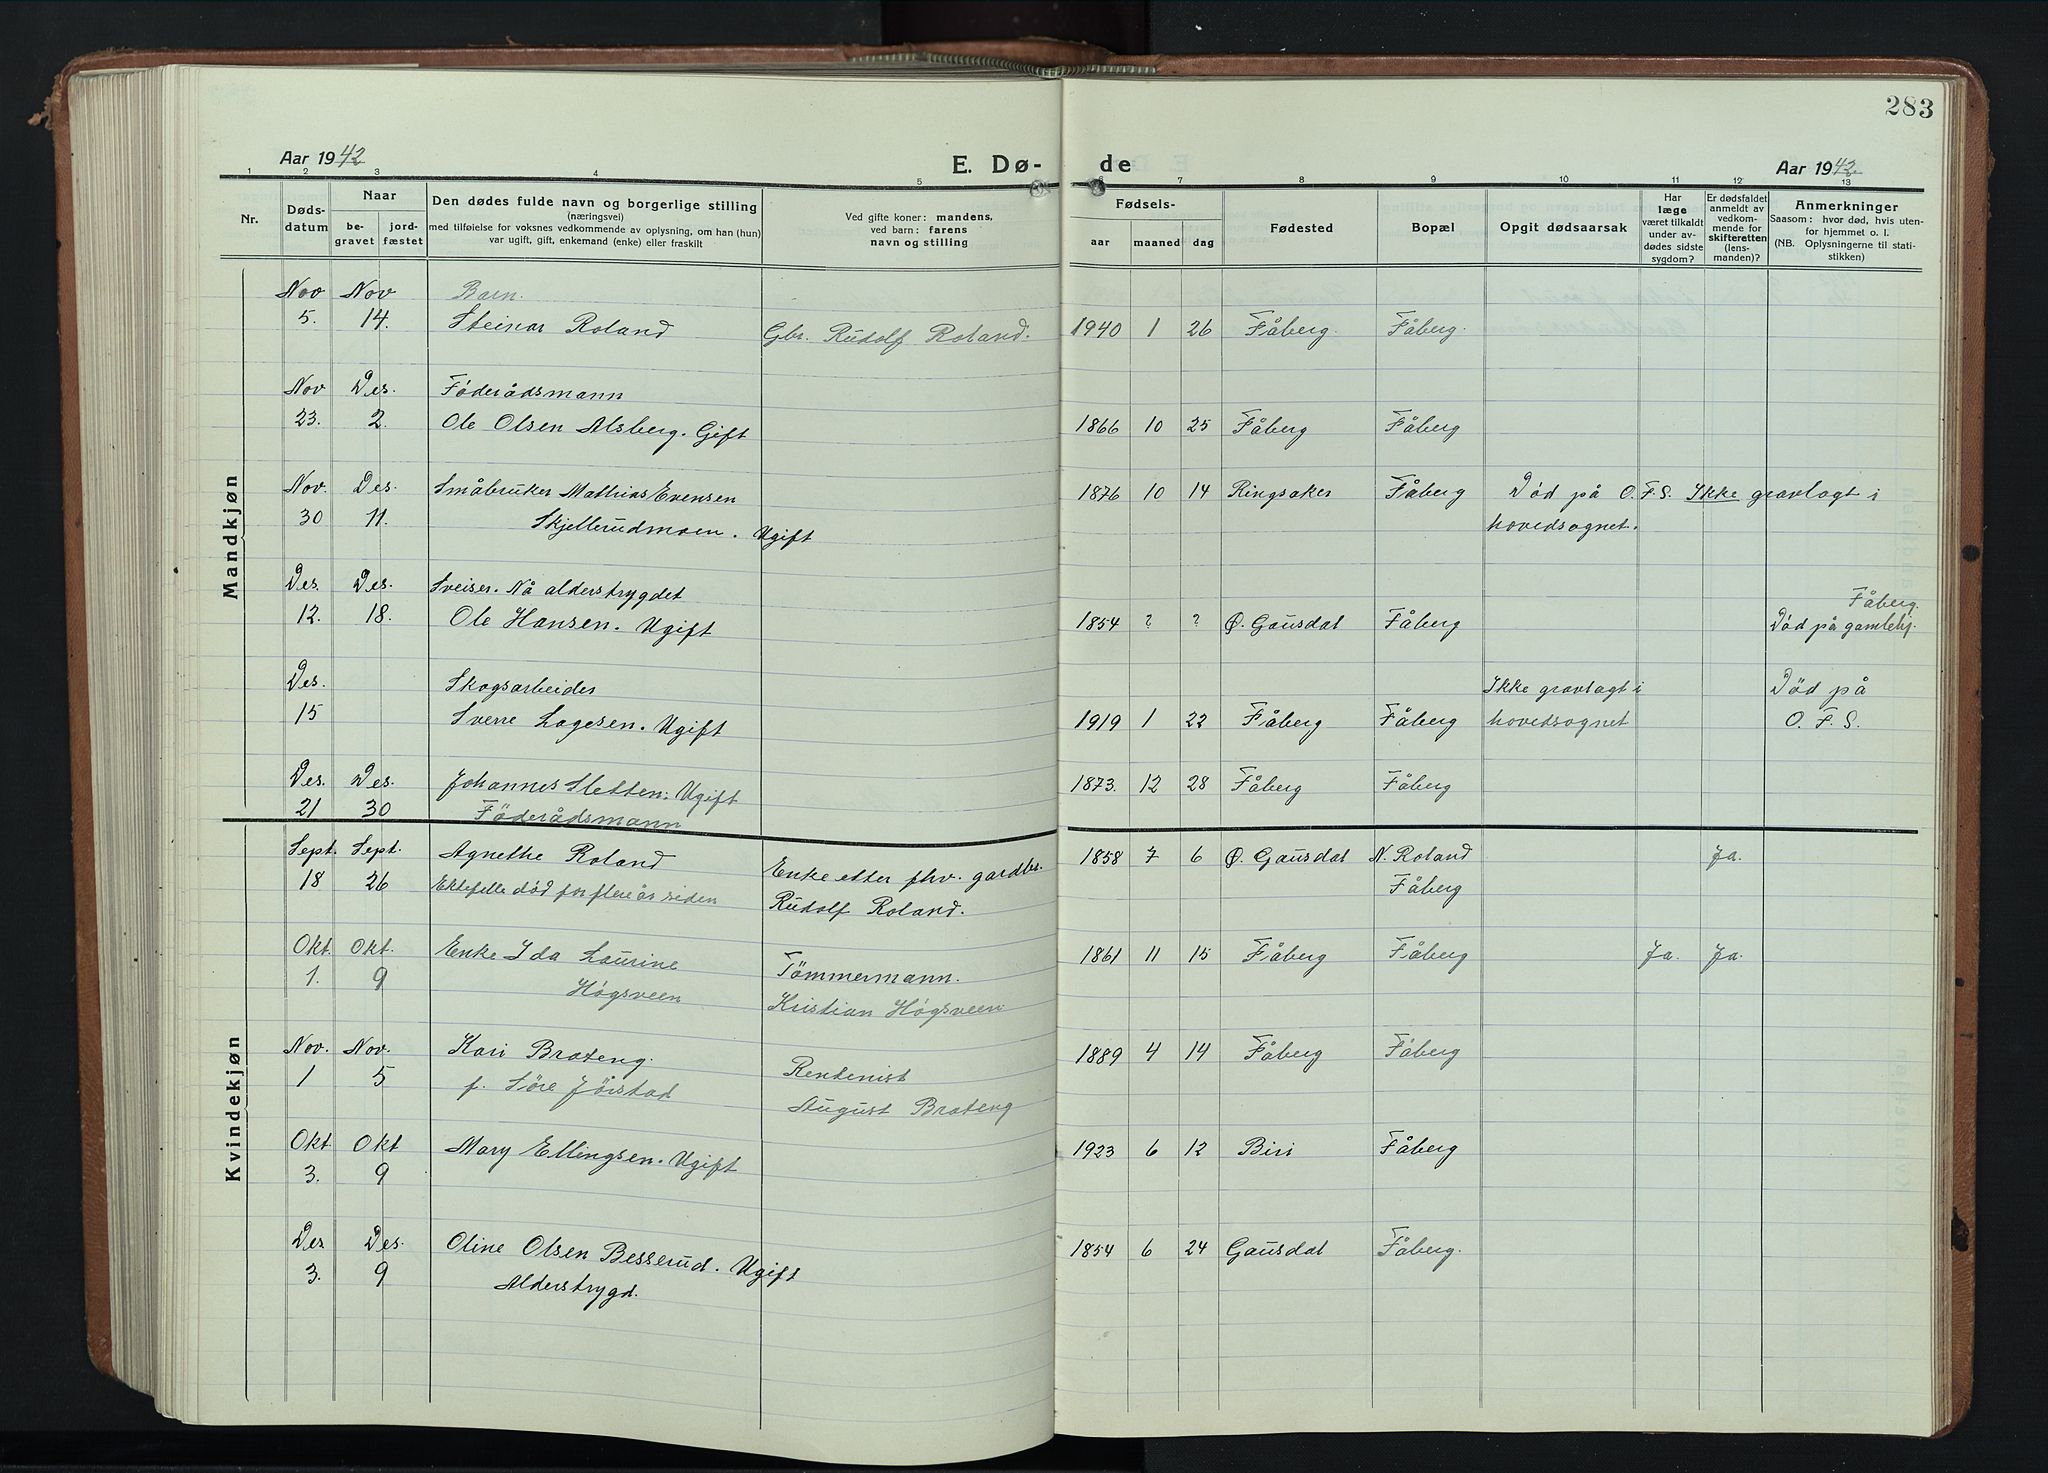 283
Aar 1942
E. Dø-
de
Aar 1942
1 2 3 4 5 6 7 8 9 10 11 12 13
Nr.
Døds-
datum
Naar
be-
gravet
jord-
fæstet
Den dødes fulde navn og borgerlige stilling
(næringsvei)
med tilføielse for voksnes vedkommende av oplysning, om han (hun)
var ugift, gift, enkemand (enke) eller fraskilt
Ved gifte koner: mandens,
ved barn: farens
navn og stilling
Fødsels-
aar maaned dag
Fødested
Bopæl
Opgit dødsaarsak
Har
læge
været tilkaldt
under av-
dødes sidste
sygdom?
Er dødsfaldet
anmeldt av
vedkom-
mende for
skifteretten
(lens-
manden)?
Anmerkninger
Saasom: hvor død, hvis uten-
for hjemmet o. l.
(NB. Oplysningerne til stati-
stikken)
Mandkjøn
Nov Nov Barn.
5. 14. Steinar Roland Gbr. Rudolf Roland. 1940 1 26 Fåberg. Fåberg.
Nov Des. Föderådsmann
23. 2. Ole Olsen Alsberg. Gift 1866 10 25 Fåberg Fåberg
Nov. Des. Småbruker Mathias Evensen 1876 10 14 Ringsaker Fåberg Död på O.F.S. Ikke gravlagt i
30 11. Skjellerudmoen. Ugift hovedsognet.
Des. Des. Sveiser. Nå alderstrygdet Fåberg.
12. 18. Ole Hansen. Ugift 1854 ? ? Ø. Gausdal Fåberg Död på gamlehj.
Des. Skogsarbeider Ikke gravlagt i Död på
15 Sverre Lagesen. Ugift 1919 1 22 Fåberg Fåberg hovedsognet O.F.S.
Des. Des. Johannes Sletten. Ugift 1873. 12 28 Fåberg Fåberg
21 30 Föderådsmann
Kvindekjøn
Sept. Sept. Agnethe Roland Enke etter fhv. gardbr. 1858 7 6 Ø. Gausdal N. Roland Ja.
18 26 Ektefelle död for flere år siden Rudolf Roland. Fåberg
Okt. Okt. Enke Ida Laurine Tömmermann. 1861 11 15 Fåberg Fåberg Ja. Ja.
1. 9 Høgsveen Kristian Høgsveen
Nov. Nov. Kari Brateng. Rentenist 1889 4 14 Fåberg Fåberg
1 5 f. Söre Jörstad August Brateng
Okt. Okt Mary Ellingsen. Ugift 1923 6 12 Biri Fåberg
3. 9
Des Des. Oline Olsen Besserud. Ugift 1854 6 24 Gausdal Fåberg.
3. 9 Alderstrygd.